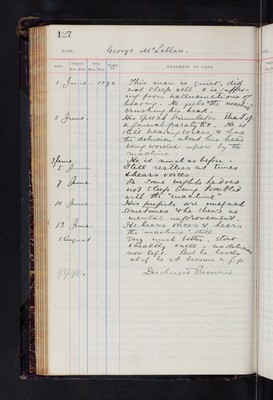 127
NAME, George McLellan.
DATE. PROGRESS OF CASE.
1 June 1890 This man is quiet, did
not sleep well & is suffer-
ing from hallucinations of
hearing. He feels the machine
crushing his head.
2 June. His speech simulates that of
a general paralytic. He is
still hearing voices, & has
the delusion about his head
being worked upon by the
machine.
3 June He is much as before.
5 June Still restless at times
& hears voices.
7 June On some nights he does
not sleep being troubled
with the "machine"
10 June His pupils are unequal
sometimes & he shows no
mental improvement.
13 June. He hears voices & hears
the "machine" still.
1 August Very much better, stout
& healthy & well - no delusions
now left. But he looks
as if he wd become a G.P.
Discharged Recovered